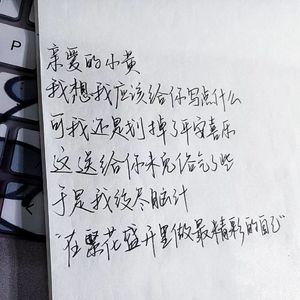 P
亲爱的小黄
我想我应该给你写点什么
可我还是划掉了平安喜乐
这送给你未免俗气了些
于是我绞尽脑汁
“在繁花盛开里做最精彩的自己”